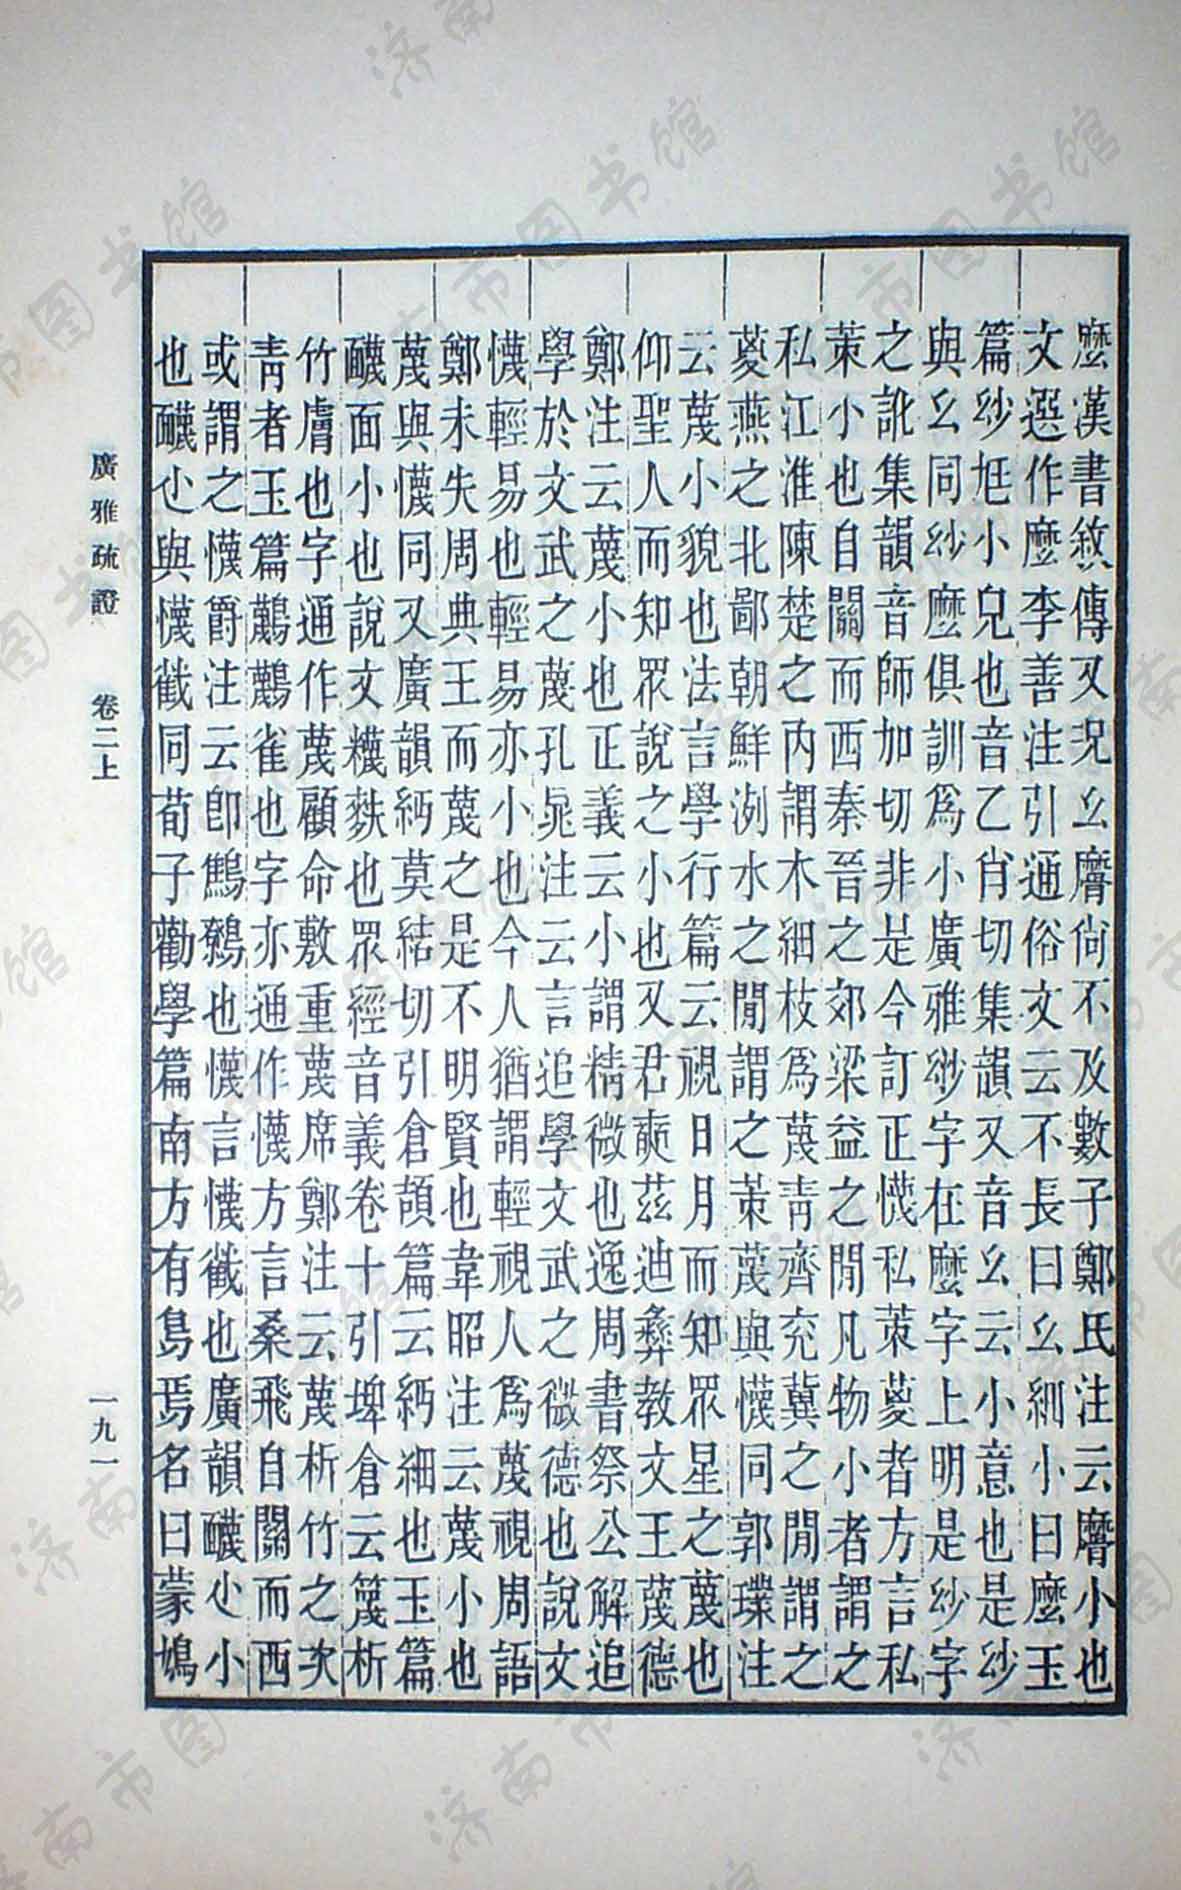 麽漢書敘傳又況幺麿尚不及數子鄭氏注云麿小也
文選作麽李善注引通俗文云不長曰幺細小曰麽玉
篇紗尪小皃也音乙肖切集韻又音幺云小意也是紗
與幺同紗麽俱訓爲小廣雅紗字在麽字上明是紗字
之訛集韻音師加切非是今訂正懱私茦葼者方言私
茦小也自關而西秦晉之郊梁益之閒凡物小者謂之
私江淮陳楚之内謂木細枝爲蔑青齊兖冀之閒謂之
葼燕之北鄙朝鮮洌水之閒謂之茦蔑與懱同郭璞注
云蔑小貌也法言學行篇云視日月而知眾星之蔑也
仰聖人而知眾說之小也又君奭茲迪彝教文王蔑德
鄭注云蔑小也正義云小謂精微也逸周書祭公解追
學於文武之蔑孔晁注云言追學文武之微德也說文
懱輕易也輕易亦小也今人猶謂輕視人爲蔑視周語
鄭未失周典王而蔑之是不明賢也韋昭注云蔑小也
蔑與懱同又廣韻䌩莫結切引倉頡篇云䌩細也玉篇
面小也說文䊳麩也眾經音義卷十引埤倉云篾析
竹膚也字通作蔑顧命敷重蔑席鄭注云蔑析竹之次
青者玉篇雀也字亦通作懱方言桑飛自關而西
或謂之懱爵注云即鷦鷯也懱言懱也廣韻尐小
也尐與懱同荀子勸學篇南方有鳥焉名曰蒙鳩
廣雅疏證 卷二上 一九一
济南市图书馆